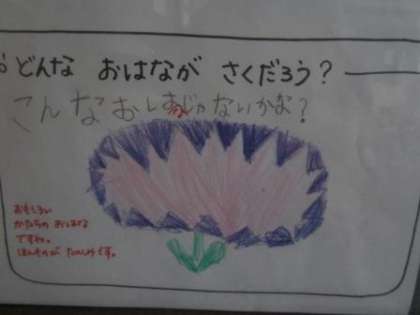 どんな おはなが さくだろう？
こんなおしばなじゃないかな？
おもしろい
かたちの おはな
ですね。
ほんものが たのしみです。